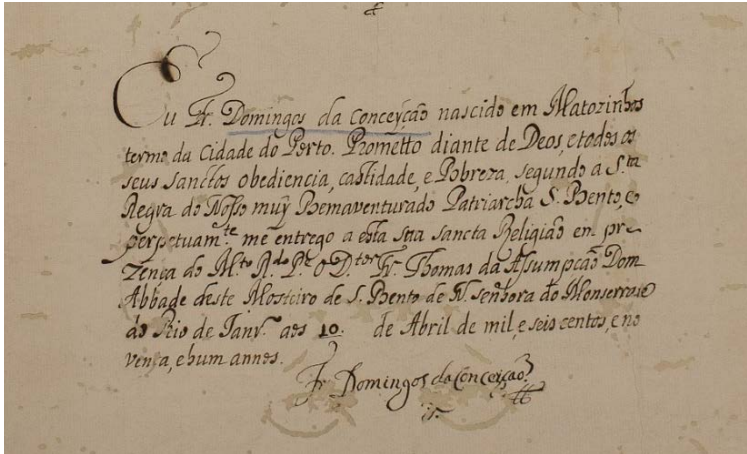 Eu Fr. Domingos da Conceyção nascido em Matozinhos
termo da Cidade do Porto. Prometto diante de Deos, e todos os
seus sanctos obediencia, castidade, e Pobreza, segundo a S.ta
Regra do Nosso muy Bemaventurado Patriarcha S. Bento, e
perpetuam.te me entrego a esta sua sancta Religião em pre-
zença do M.to R.do P.e o D.tor Fr. Thomas da Assumpcão Dom
Abbade deste Mosteiro de S. Bento de N. senhora do Monserrate
do Rio de Janr.o aos 10. de Abril de mil, e seis centos, e no
venta, e hum annos.
Fr. Domingos da Conceição